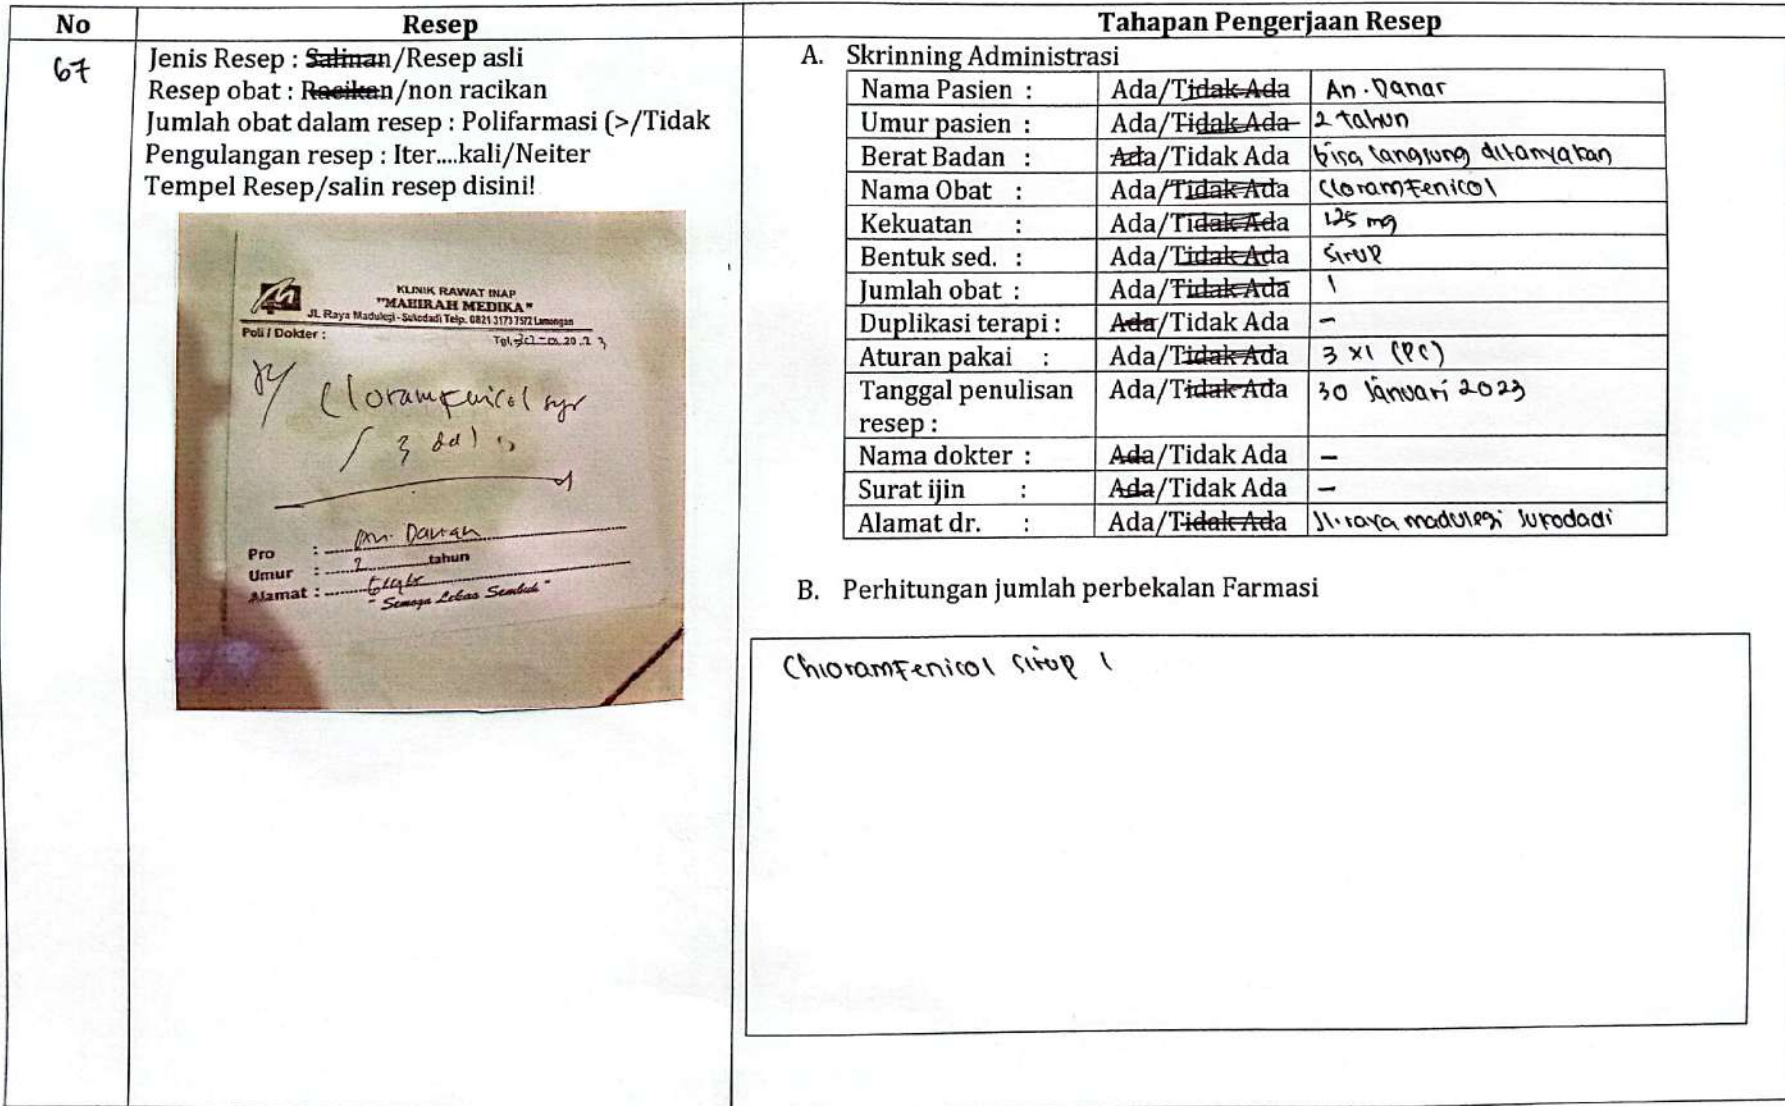 No Resep Tahapan Pengerjaan Resep
67
Jenis Resep : Salinan/Resep asli
Resep obat : Racikan/non racikan
Jumlah obat dalam resep : Polifarmasi (>/Tidak
Pengulangan resep : Iter....kali/Neiter
Tempel Resep/salin resep disini!
KLINIK RAWAT INAP
"MAHIRAH MEDIKA"
JL. Raya Madulegi - Sukodadi Telp. 0821 3173 7572 Lamongan
Poli / Dokter :
Tgl,
R/ Cloramfenicol syr
Pro :
Umur : 2 tahun
Alamat :
"Semoga Lekas Sembuh"
A. Skrinning Administrasi
Nama Pasien : Ada/Tidak Ada An. Danar
Umur pasien : Ada/Tidak Ada 2 tahun
Berat Badan : Ada/Tidak Ada bisa langsung ditanyakan
Nama Obat : Ada/Tidak Ada Cloramfenicol
Kekuatan : Ada/Tidak Ada 125 mg
Bentuk sed. : Ada/Tidak Ada Sirup
Jumlah obat : Ada/Tidak Ada 1
Duplikasi terapi : Ada/Tidak Ada -
Aturan pakai : Ada/Tidak Ada 3 x1 (PC)
Tanggal penulisan Ada/Tidak Ada 30 Januari 2023
resep :
Nama dokter : Ada/Tidak Ada -
Surat ijin : Ada/Tidak Ada -
Alamat dr. : Ada/Tidak Ada Jl. raya madulegi sukodadi
B. Perhitungan jumlah perbekalan Farmasi
Chloramfenicol sirup 1